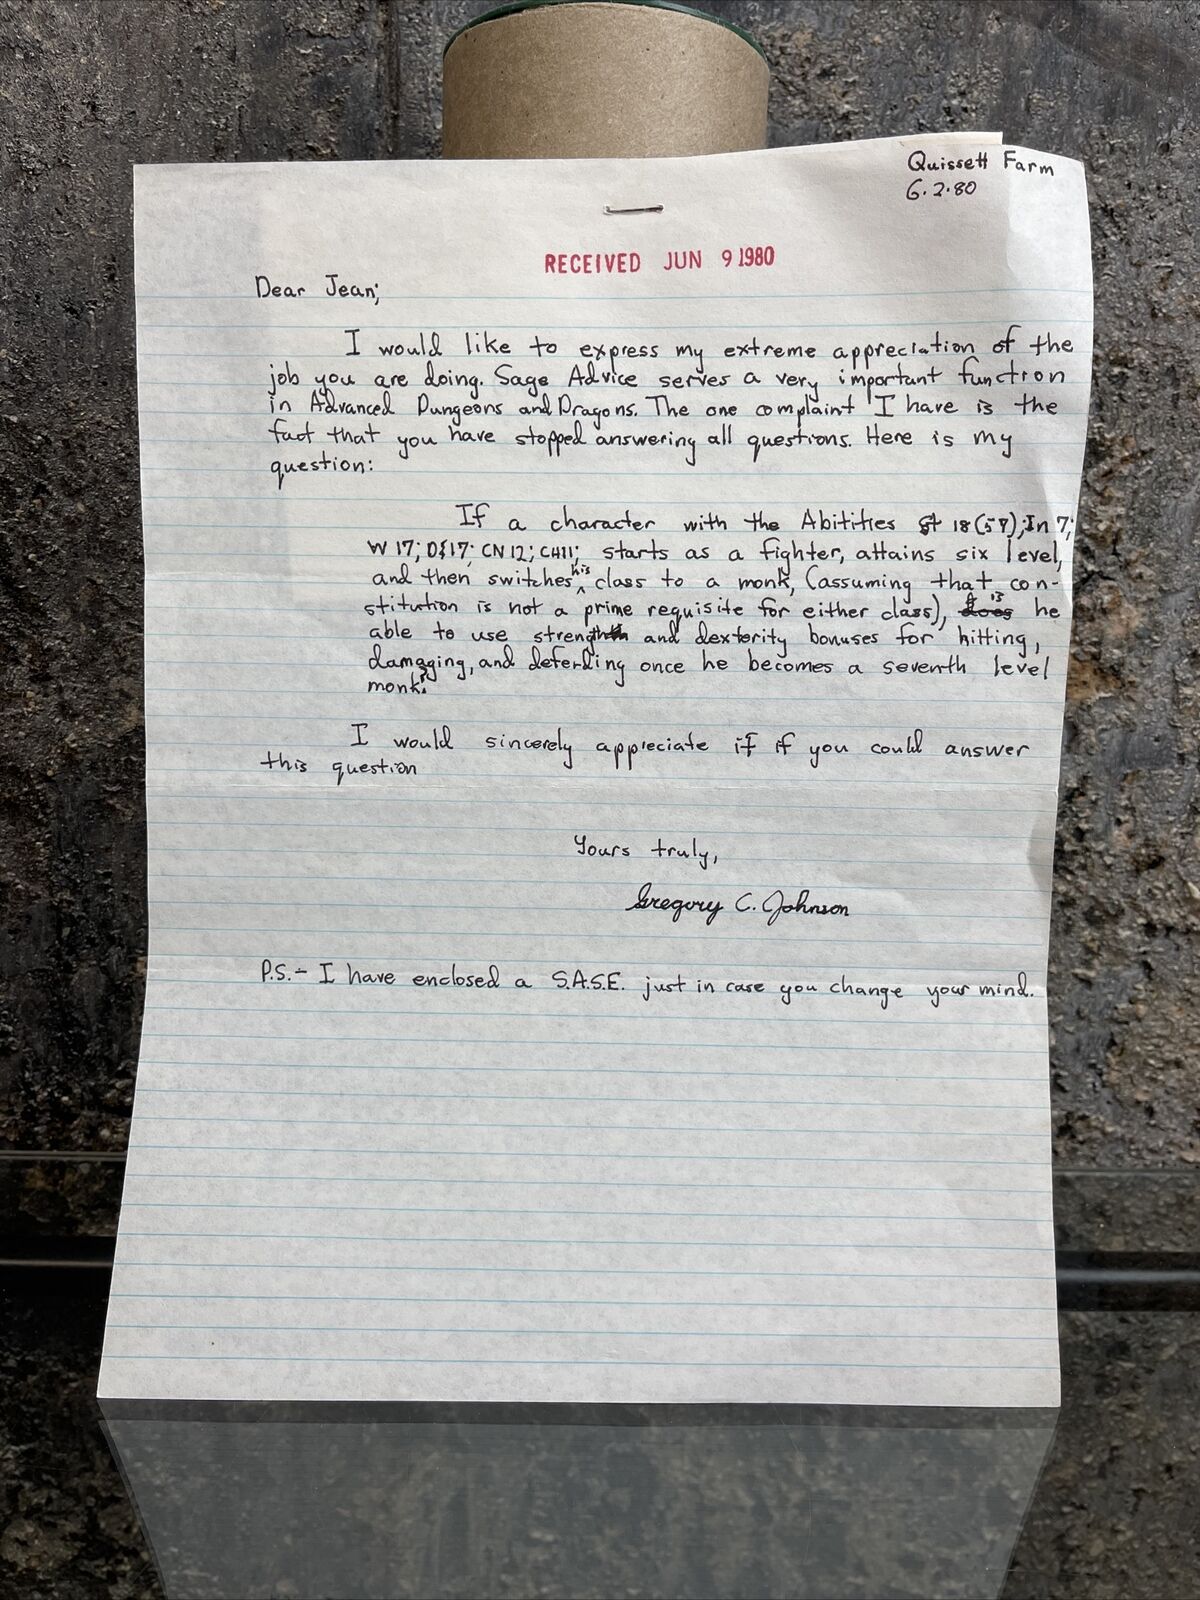 Quissett Farm
6.2.80
RECEIVED JUN 9 1980
Dear Jean;
I would like to express my extreme appreciation of the
job you are doing. Sage Advice serves a very important function
in Advanced Dungeons and Dragons. The one complaint I have is the
fact that you have stopped answering all questions. Here is my
question:
If a character with the Abitities St 18(57); In 7;
W 17; D 17; CN 12; CH 11; starts as a fighter, attains six level,
and then switches his class to a monk, (assuming that con-
stitution is not a prime requisite for either class), is he
able to use strength and dexterity bonuses for hitting,
damaging, and defending once he becomes a seventh level
monk?
I would sincerely appreciate it if you could answer
this question
Yours truly,
Gregory C. Johnson
P.S.- I have enclosed a S.A.S.E. just in case you change your mind.